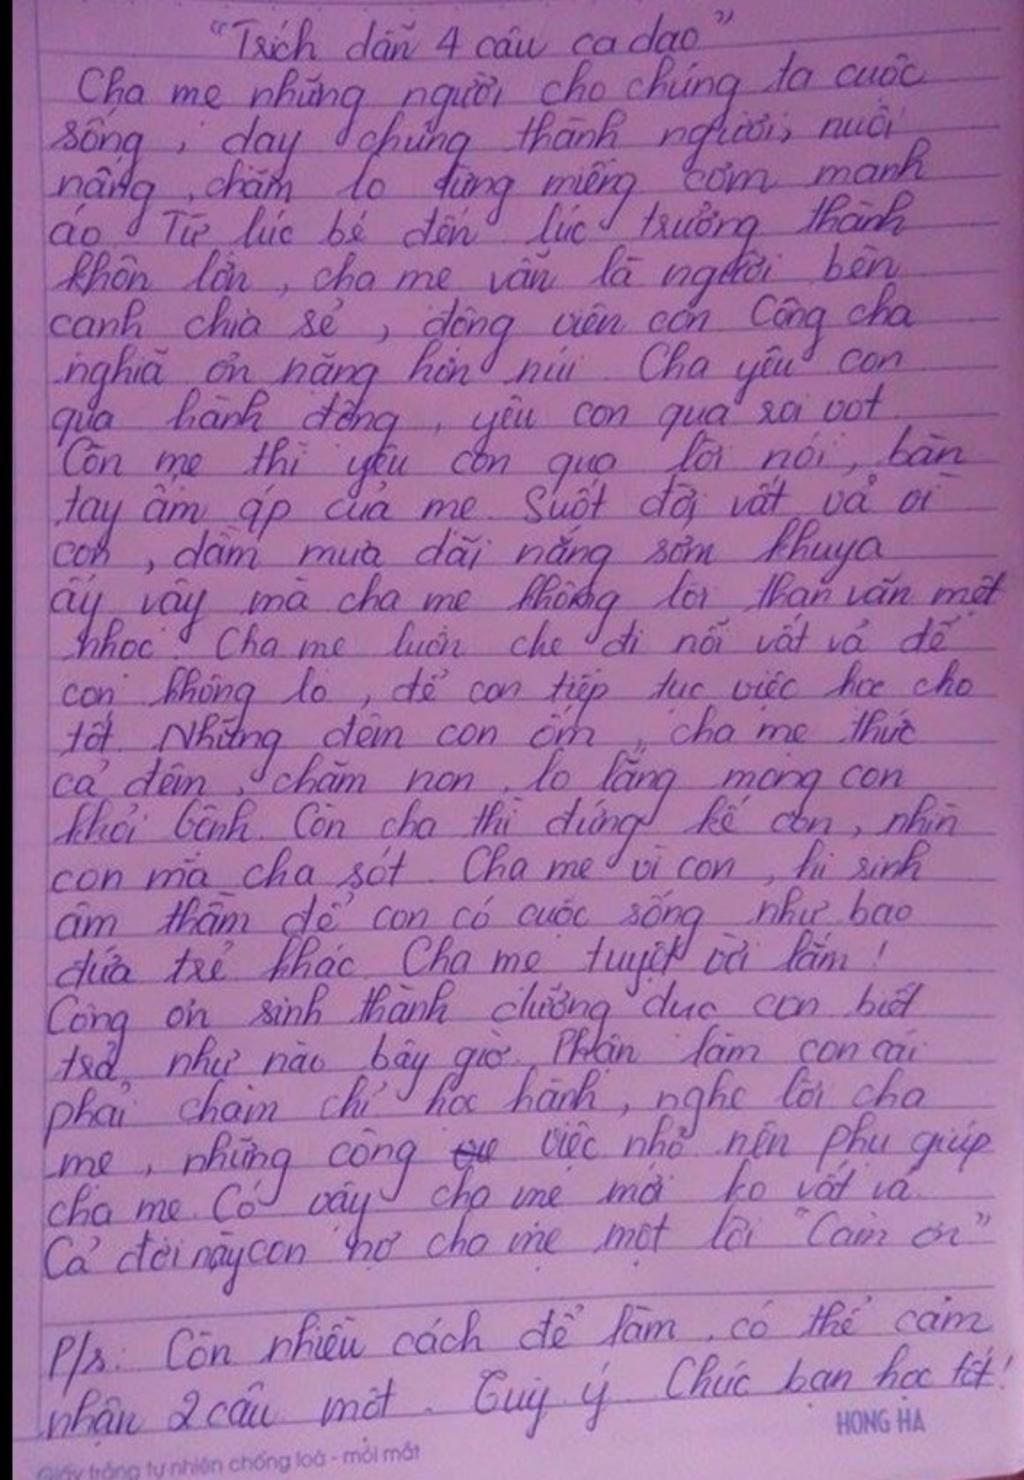 "Trích dẫn 4 câu ca dao"
Cha mẹ những người cho chúng ta cuộc
sống, dạy chúng thành người, nuôi
nấng, chăm lo từng miếng cơm manh
áo. Từ lúc bé đến lúc trưởng thành
khôn lớn, cha mẹ vẫn là người bên
cạnh chia sẻ, động viên con Công cha
nghĩa ơn nặng hơn núi. Cha yêu con
qua hành động, yêu con qua roi vọt.
Còn mẹ thì yêu con qua lời nói, bàn
tay ấm áp của mẹ. Suốt đời vất vả vì
con, dầm mưa dãi nắng sớm khuya
ấy vậy mà cha mẹ không lời than vãn mệt
nhọc. Cha mẹ luôn che đi nỗi vất vả để
con không lo, để con tiếp tục việc học cho
tốt. Những đêm con ốm, cha mẹ thức
cả đêm, chăm non, lo lắng mong con
khỏi bệnh. Còn cha thì đứng kế con, nhìn
con mà cha sót. Cha mẹ vì con, hi sinh
âm thầm để con có cuộc sống như bao
đứa trẻ khác. Cha mẹ tuyệt vời lắm!
Công ơn sinh thành dưỡng dục con biết
trả như nào bây giờ. Phận làm con cái
phải chăm chỉ học hành, nghe lời cha
mẹ, những công việc nhỏ nên phụ giúp
cha mẹ. Có vậy cha mẹ mới ko vất vả.
Cả đời này con nợ cha mẹ một lời "Cảm ơn"
P/s: Còn nhiều cách để làm, có thể cảm
nhận 2 câu một. Tuỳ ý. Chúc bạn học tốt!
HONG HA
Giấy trắng tự nhiên chống loá - mỏi mắt